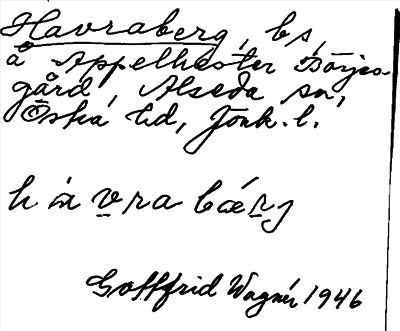 Havraberg, bs,
å Appelhester Börjes
gård, Alseda sn,
Östra hd, Jönk. l.
havrabærj
Gottfrid Wagnér 1946